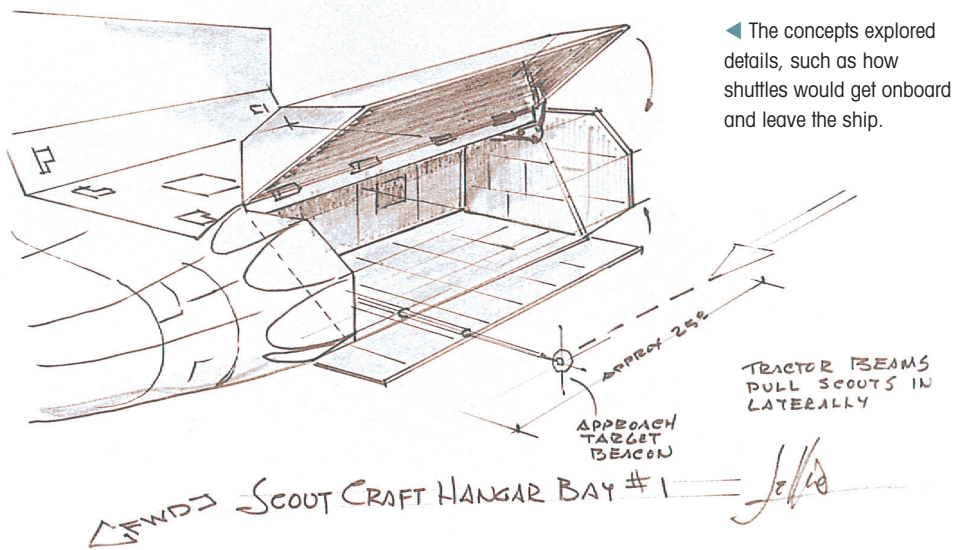 ◀ The concepts explored
details, such as how
shuttles would get onboard
and leave the ship.
APPROX 25°
TRACTOR BEAMS
PULL SCOUTS IN
LATERALLY
APPROACH
TARGET
BEACON
FWD SCOUT CRAFT HANGAR BAY #1